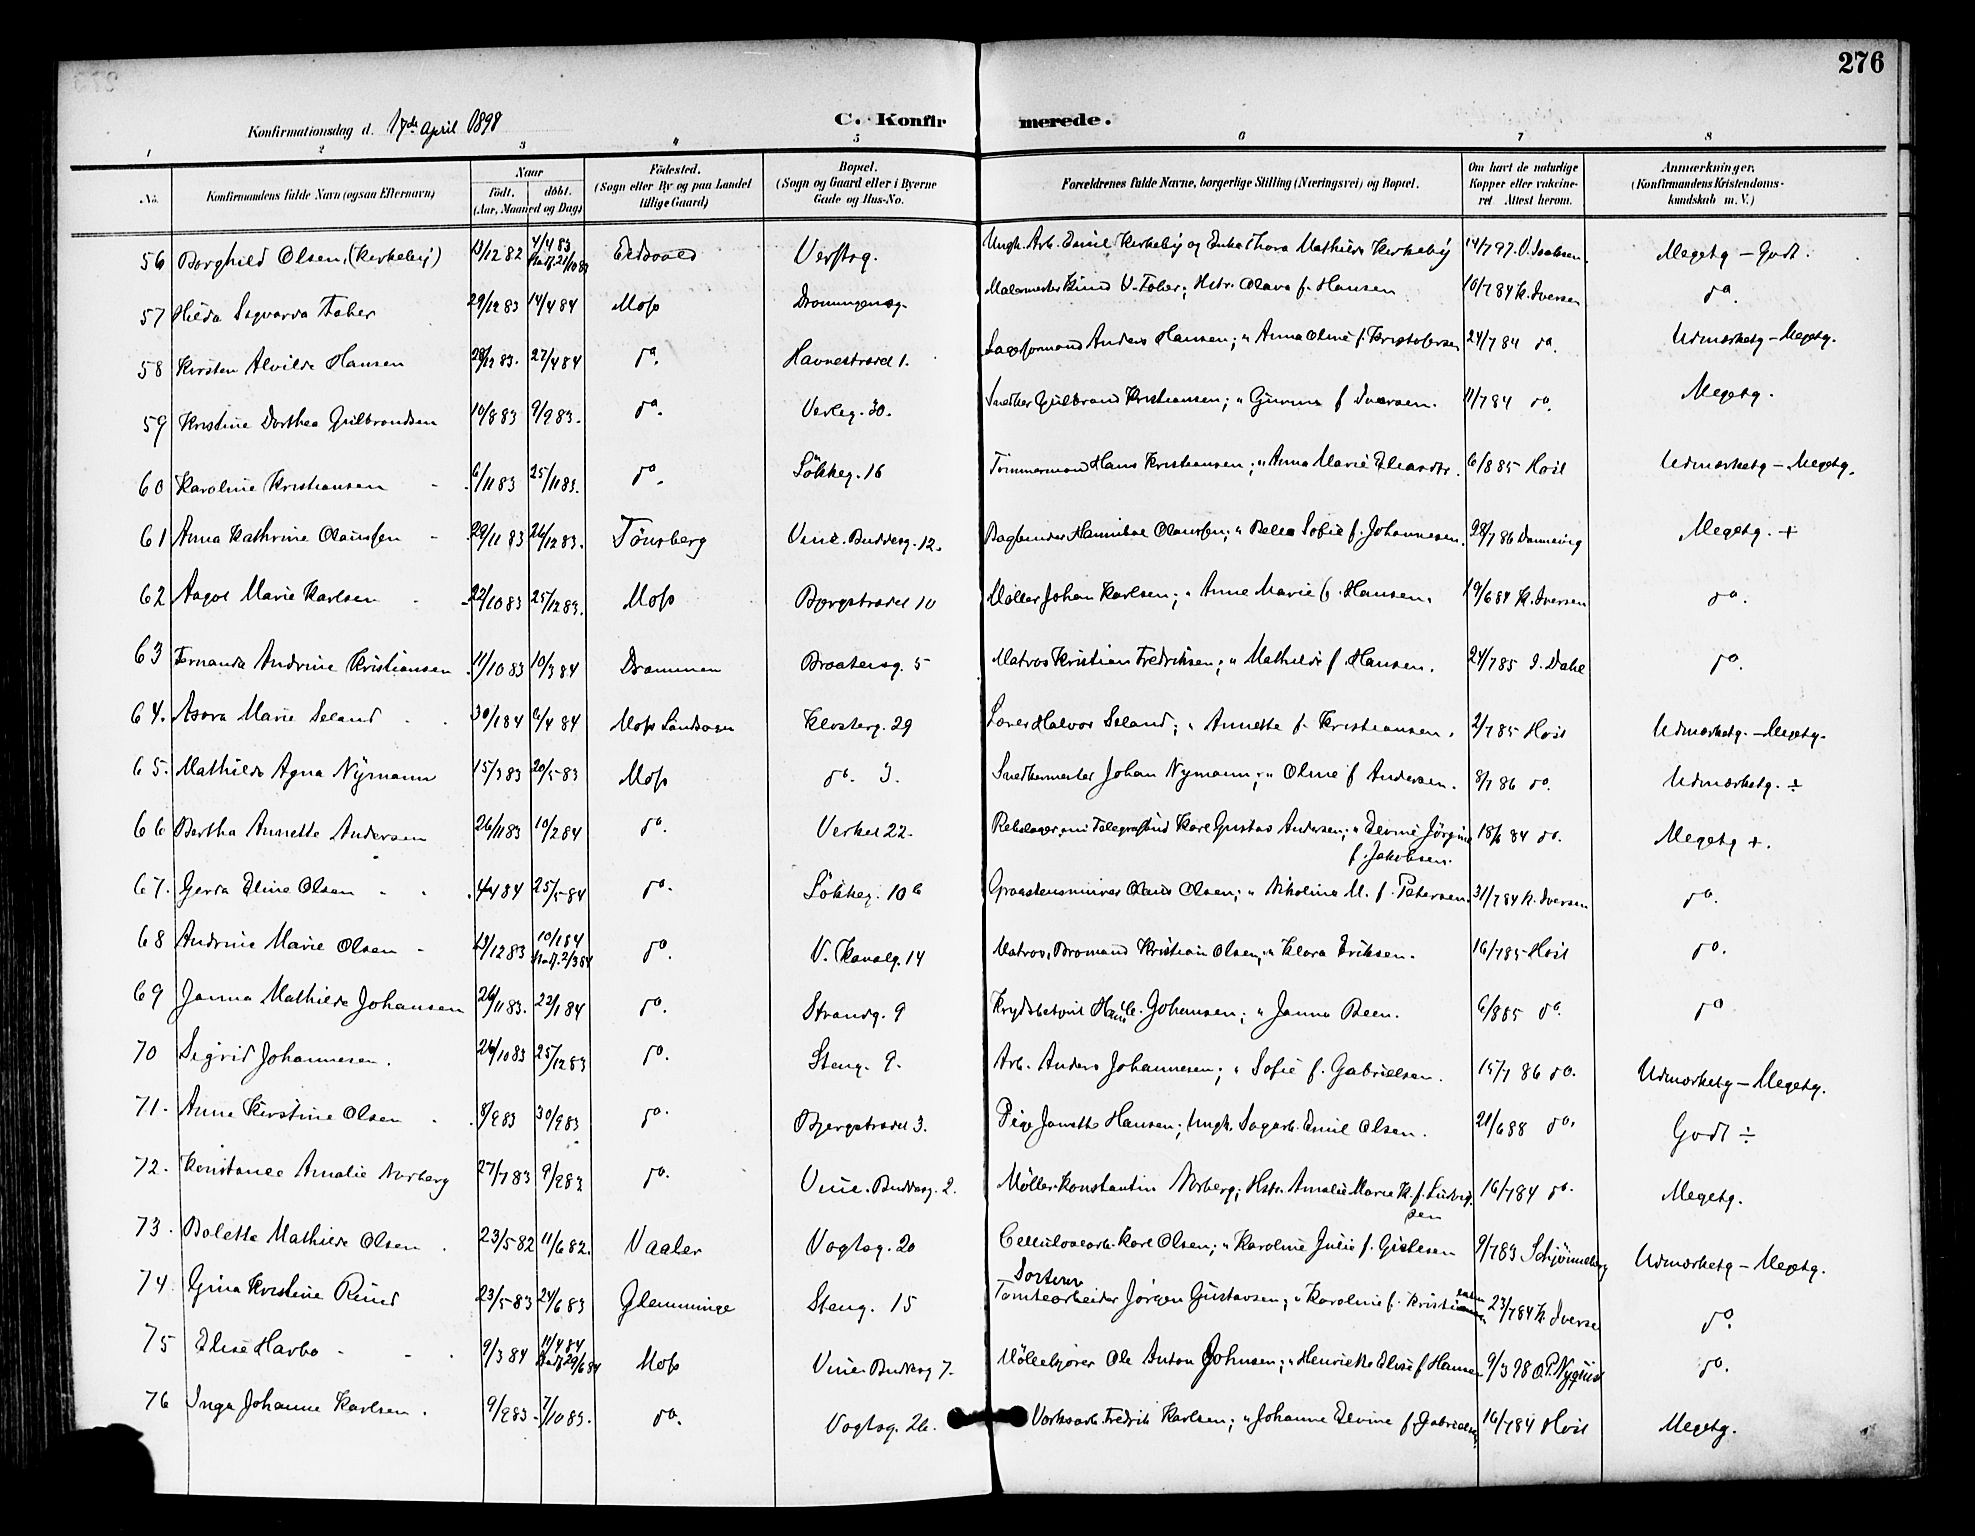 276
Konfirmationsdag d. 17de April 1898
C. Konfir merede.
1 2 3 4 5 6 7 8
No. Konfirmandens fulde Navn (ogsaa Efternavn) Naar född. döbt. (Aar, Maaned og Dag) Födested. (Sogn eller By og paa Landet tillige Gaard) Bopæl. (Sogn og Gaard eller i Byerne Gade og Hus-No. Forældrenes fulde Navne, borgerlige Stilling (Næringsvei) og Bopæl. Om havt de naturlige Kopper eller vakcineret. Attest herom. Anmærkninger. (Konfirmandens Kristendomskundskab m. V.)
56 Borghild Olsen, (Kirkeby) 13/12 82 4/4 83 Eidsvold Verftsg. Ungk. Arb. Emil Kirkeby og Enke Thora Mathilde Kirkeby 14/7 97. Megetg – Godt.
57 Hilda Sigvarda Faber 29/12 83 14/4 84 Moss Dronningensg. Malermester Knud V. Faber; Hstr. Olava f. Hansen 10/7 84 K. Iversen do.
58 Kirsten Alvilde Hansen 28/12 83. 27/4 84 do. Havnestrædet 1. Sagformand Anders Hansen; " Anna Oline f. Kristofersen 24/7 84 do. Udmærketg – Megetg.
59 Kristine Dorthea Gulbrandsen 10/8 83 9/9 83. do. Verleg. 30. Snedker Gulbrand Kristiansen; " Gunine f Iversen. 11/7 84 do. Megetg.
60 Karoline Kristiansen 6/11 83 25/11 83. do. Løkkeg. 16 Tømmermand Hans Kristiansen; " Anna Marie 6/8 85 Hvil Udmærketg – Megetg.
61 Anna Kathrine Olaussen 29/11 83 26/12 83. Tönsberg Vinc. Buddesg. 12. Bogbinder Hannibal Olaussen; " Sofie f. Johannesen. 28/7 86 Megetg. +
62 Aagot Marie Karlsen 22/10 83 25/12 83. Moss Bjergstrædet 10 Møller Johan Karlsen; " Anne Marie f. Hansen. 19/6 84 K. Iversen do.
63 Fernanda Andrine Kristiansen 11/10 83 10/3 84 Drammen Braatensg. 5 Matros Kristian Fredriksen; " Mathilde f. Hansen. 24/7 85 I. Dahl do.
64. Asora Marie Seland 30/1 84 6/4 84 Moss Landsogn Klosterg. 29 Halvor Seland; " Annette f. Kristiansen. 2/7 85 Hvil Udmærketg. – Megetg.
65. Mathilde Agna Nymann 15/3 83 20/5 83 Moss do. 3. Snedkermester Johan Nymann; " Oline f Andersen. 8/7 86 do. Udmærketg. ÷
66 Bertha Annette Andersen 26/11 83 10/2 84 do. Verket 22. Rebslager, nu Telegrafbud Karl Gustav Andersen; " Elvine Jörgine f. Jakobsen. 18/6 84 do. Megetg +.
67. Gerda Eline Olsen 4/4 84 25/5 84 do. Løkkeg. 10b Graastensminer Olaus Olsen; " Nikoline M. f. Petersen. 31/7 84 K. Iversen do.
68 Andrine Marie Olsen 13/12 83 10/1 84 2/3 84 do. V. Kanalg. 14 Matros, Bromand Kristian Olsen; " Klara Eriksen. 16/7 85 Hvil do.
69 Janna Mathilde Johansen 26/11 83. 22/1 84 do. Strandg. 9 Krydsbetjent Hans C. Johansen; " Janna Been. 6/8 85 do. do
70 Sigrid Johannesen. 26/10 83 25/12 83 do. Steng. 9. Arb. Anders Johannesen; " Sofie f. Gabrielsen. 15/7 86 do. Udmærketg – Megetg.
71. Anne Kirstine Olsen 8/9 83 30/9 83 do. Bjergstrædet 3. Pige Janette Hansen; Ungk. Sagarb. Emil Olsen. 21/6 88 do. Godt ÷
72. Konstance Amalie Norberg 27/7 83 9/9 83 do. Vinc. Buddesg. 2. Møller Konstantin Norberg; Hstr. Amalie Marie K. f. Ludvigsen 16/7 84 do. Megetg.
73. Bolette Mathilde Olsen 23/5 82 11/6 82. Vaaler Vogtsg. 20 Cellulosearb. Karl Olsen; " Karoline Julie f. Gislesen 9/7 83 Schjønneberg Udmærketg – Megetg.
74 Gina Kristine Rund 23/5 83 24/6 83 Glemminge Steng. 15 Sorterer Tomtearbeider Jörgen Gustavsen; " Karoline f. Kristiansen 23/7 84 K. Iverse do.
75 Elise Harbo 9/3 84 11/4 84 29/6 84 Moss Vinc. Buddesg 7. Møllekjører Ole Anton Johnsen; " Henriette Elise f Hansen 9/3 98 O. P. Nyquist do.
76 Inga Johanne Karlsen. 9/9 83 7/10 83. do. Vogtsg. 26. Værksarb. Fredrik Karlsen; " Johanne Elvine f. Gabrielsen 16/7 84 Hvil Megetg.